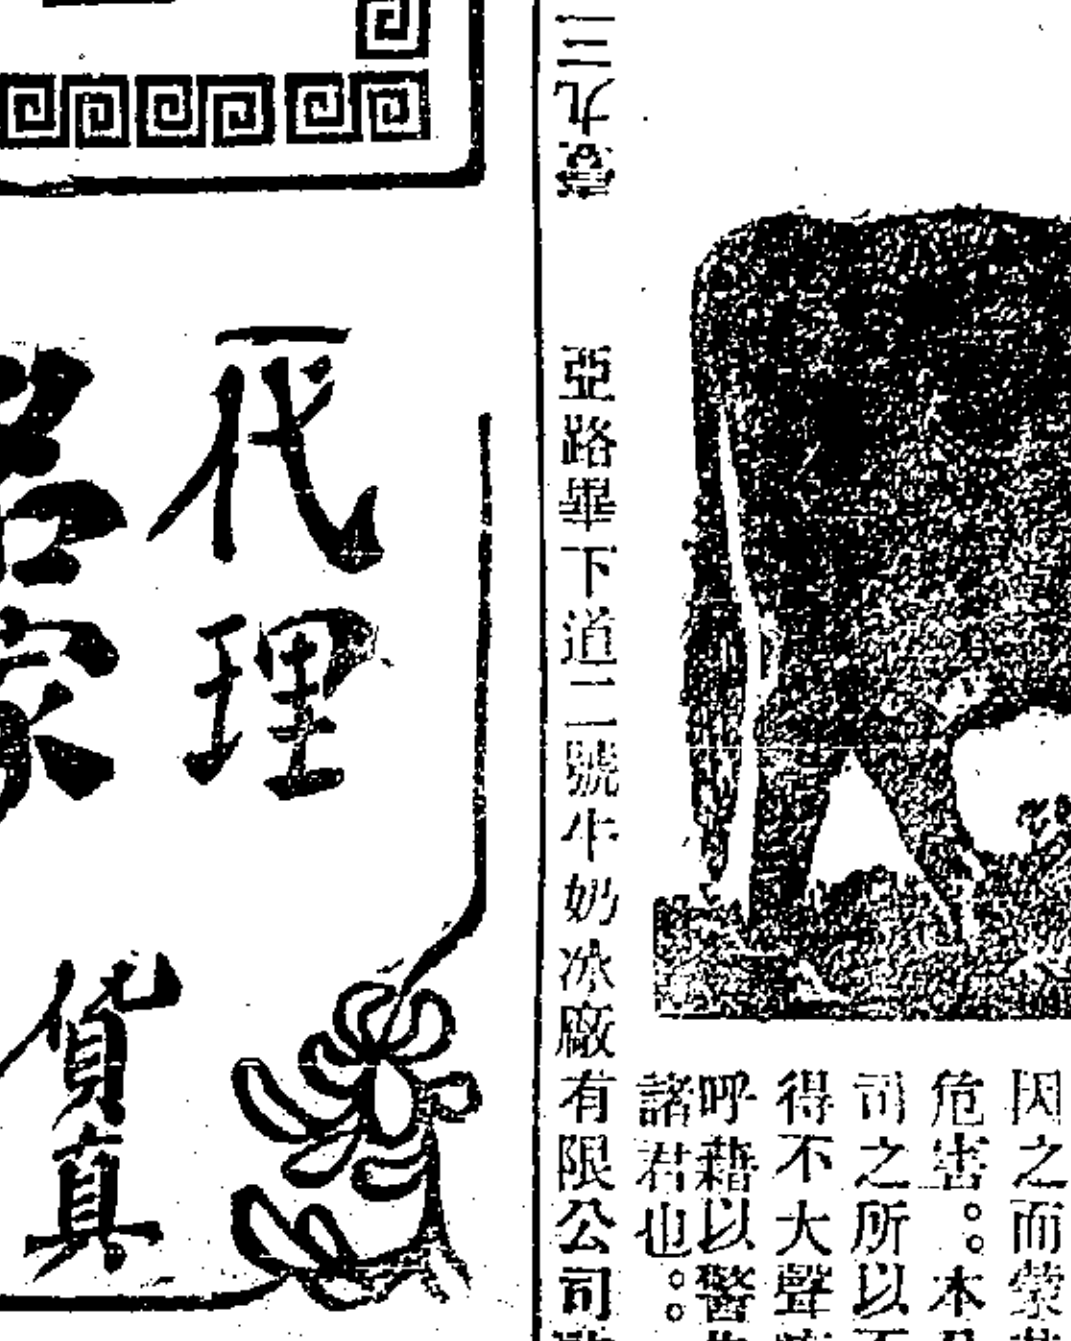 因之而蒙
危害。本
司之所以
得不大聲
呼藉以警
諸君也。
三三九壹
亞路畢下道二號牛奶冰廠有限公司
代理
名家
貨真